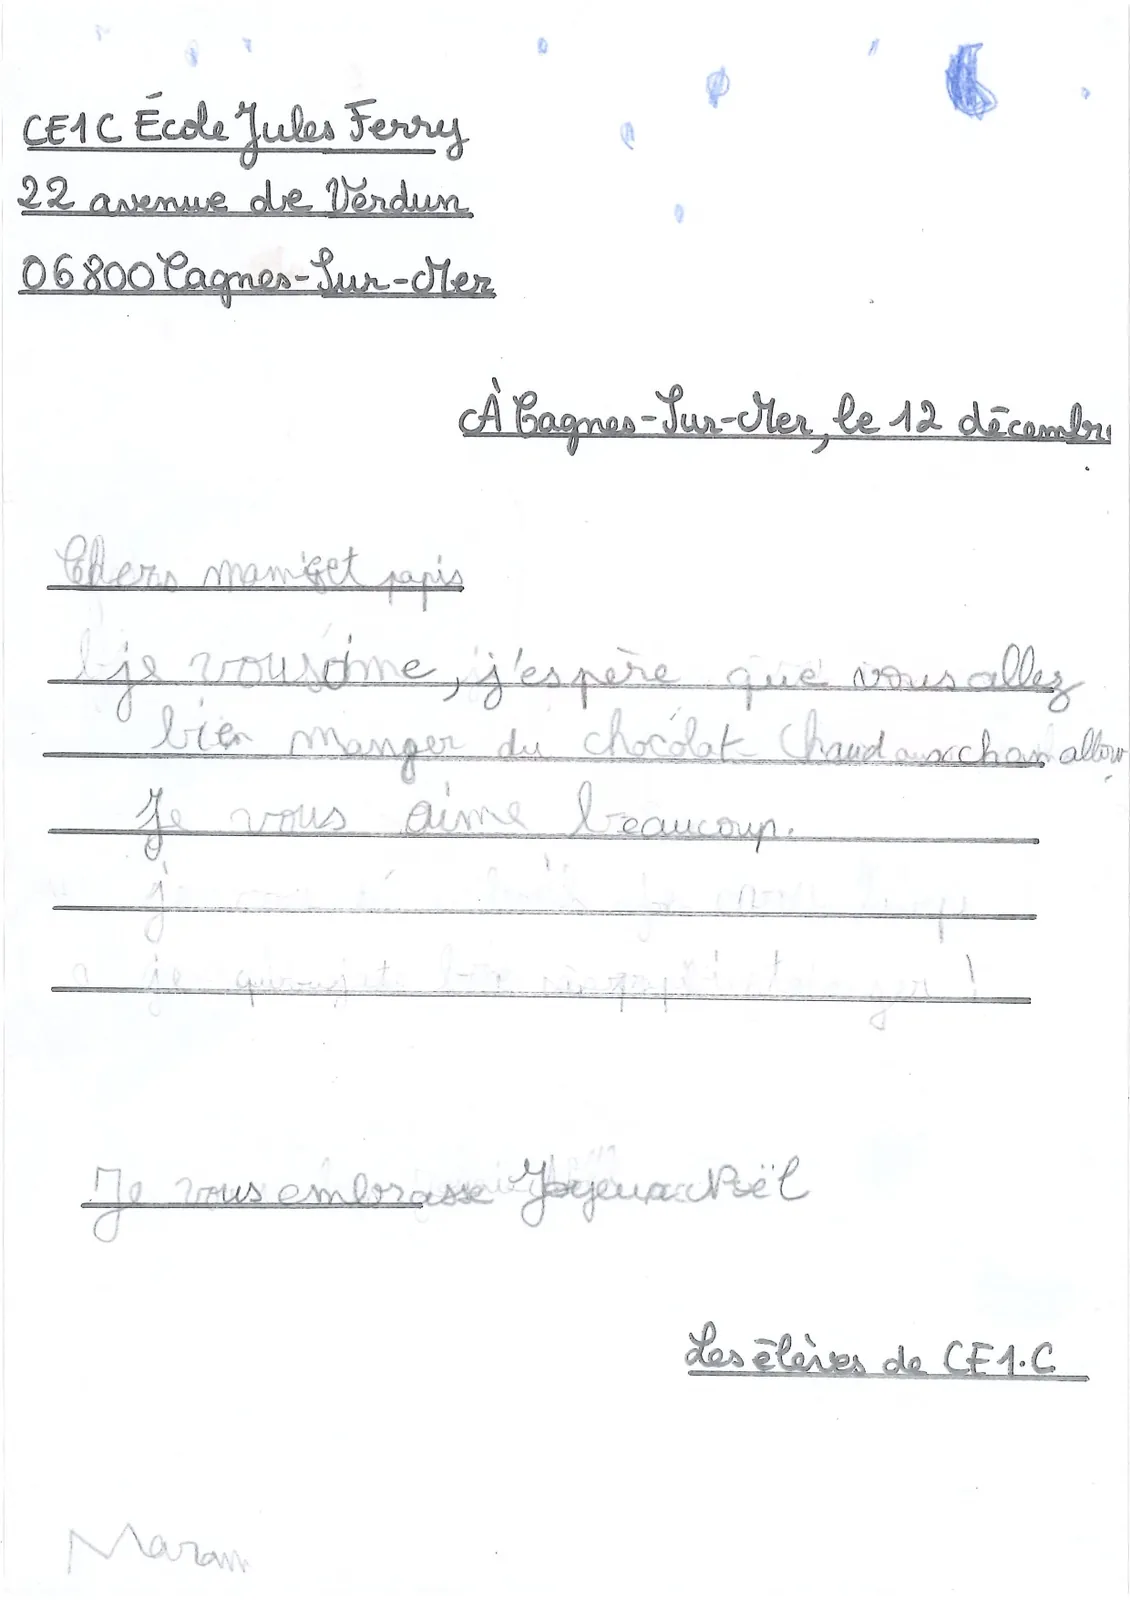 CE1C École Jules Ferry
22 avenue de Verdun
06800 Cagnes-Sur-Mer
À Cagnes-Sur-Mer, le 12 décembr
Chers mamiset papis
je vous aime, j'espère que vous allez
bien manger du chocolat chaud aux chamallow
Je vous aime beaucoup.
Je vous embrasse Joyeux Noël
Les élèves de CE1.C
Maram